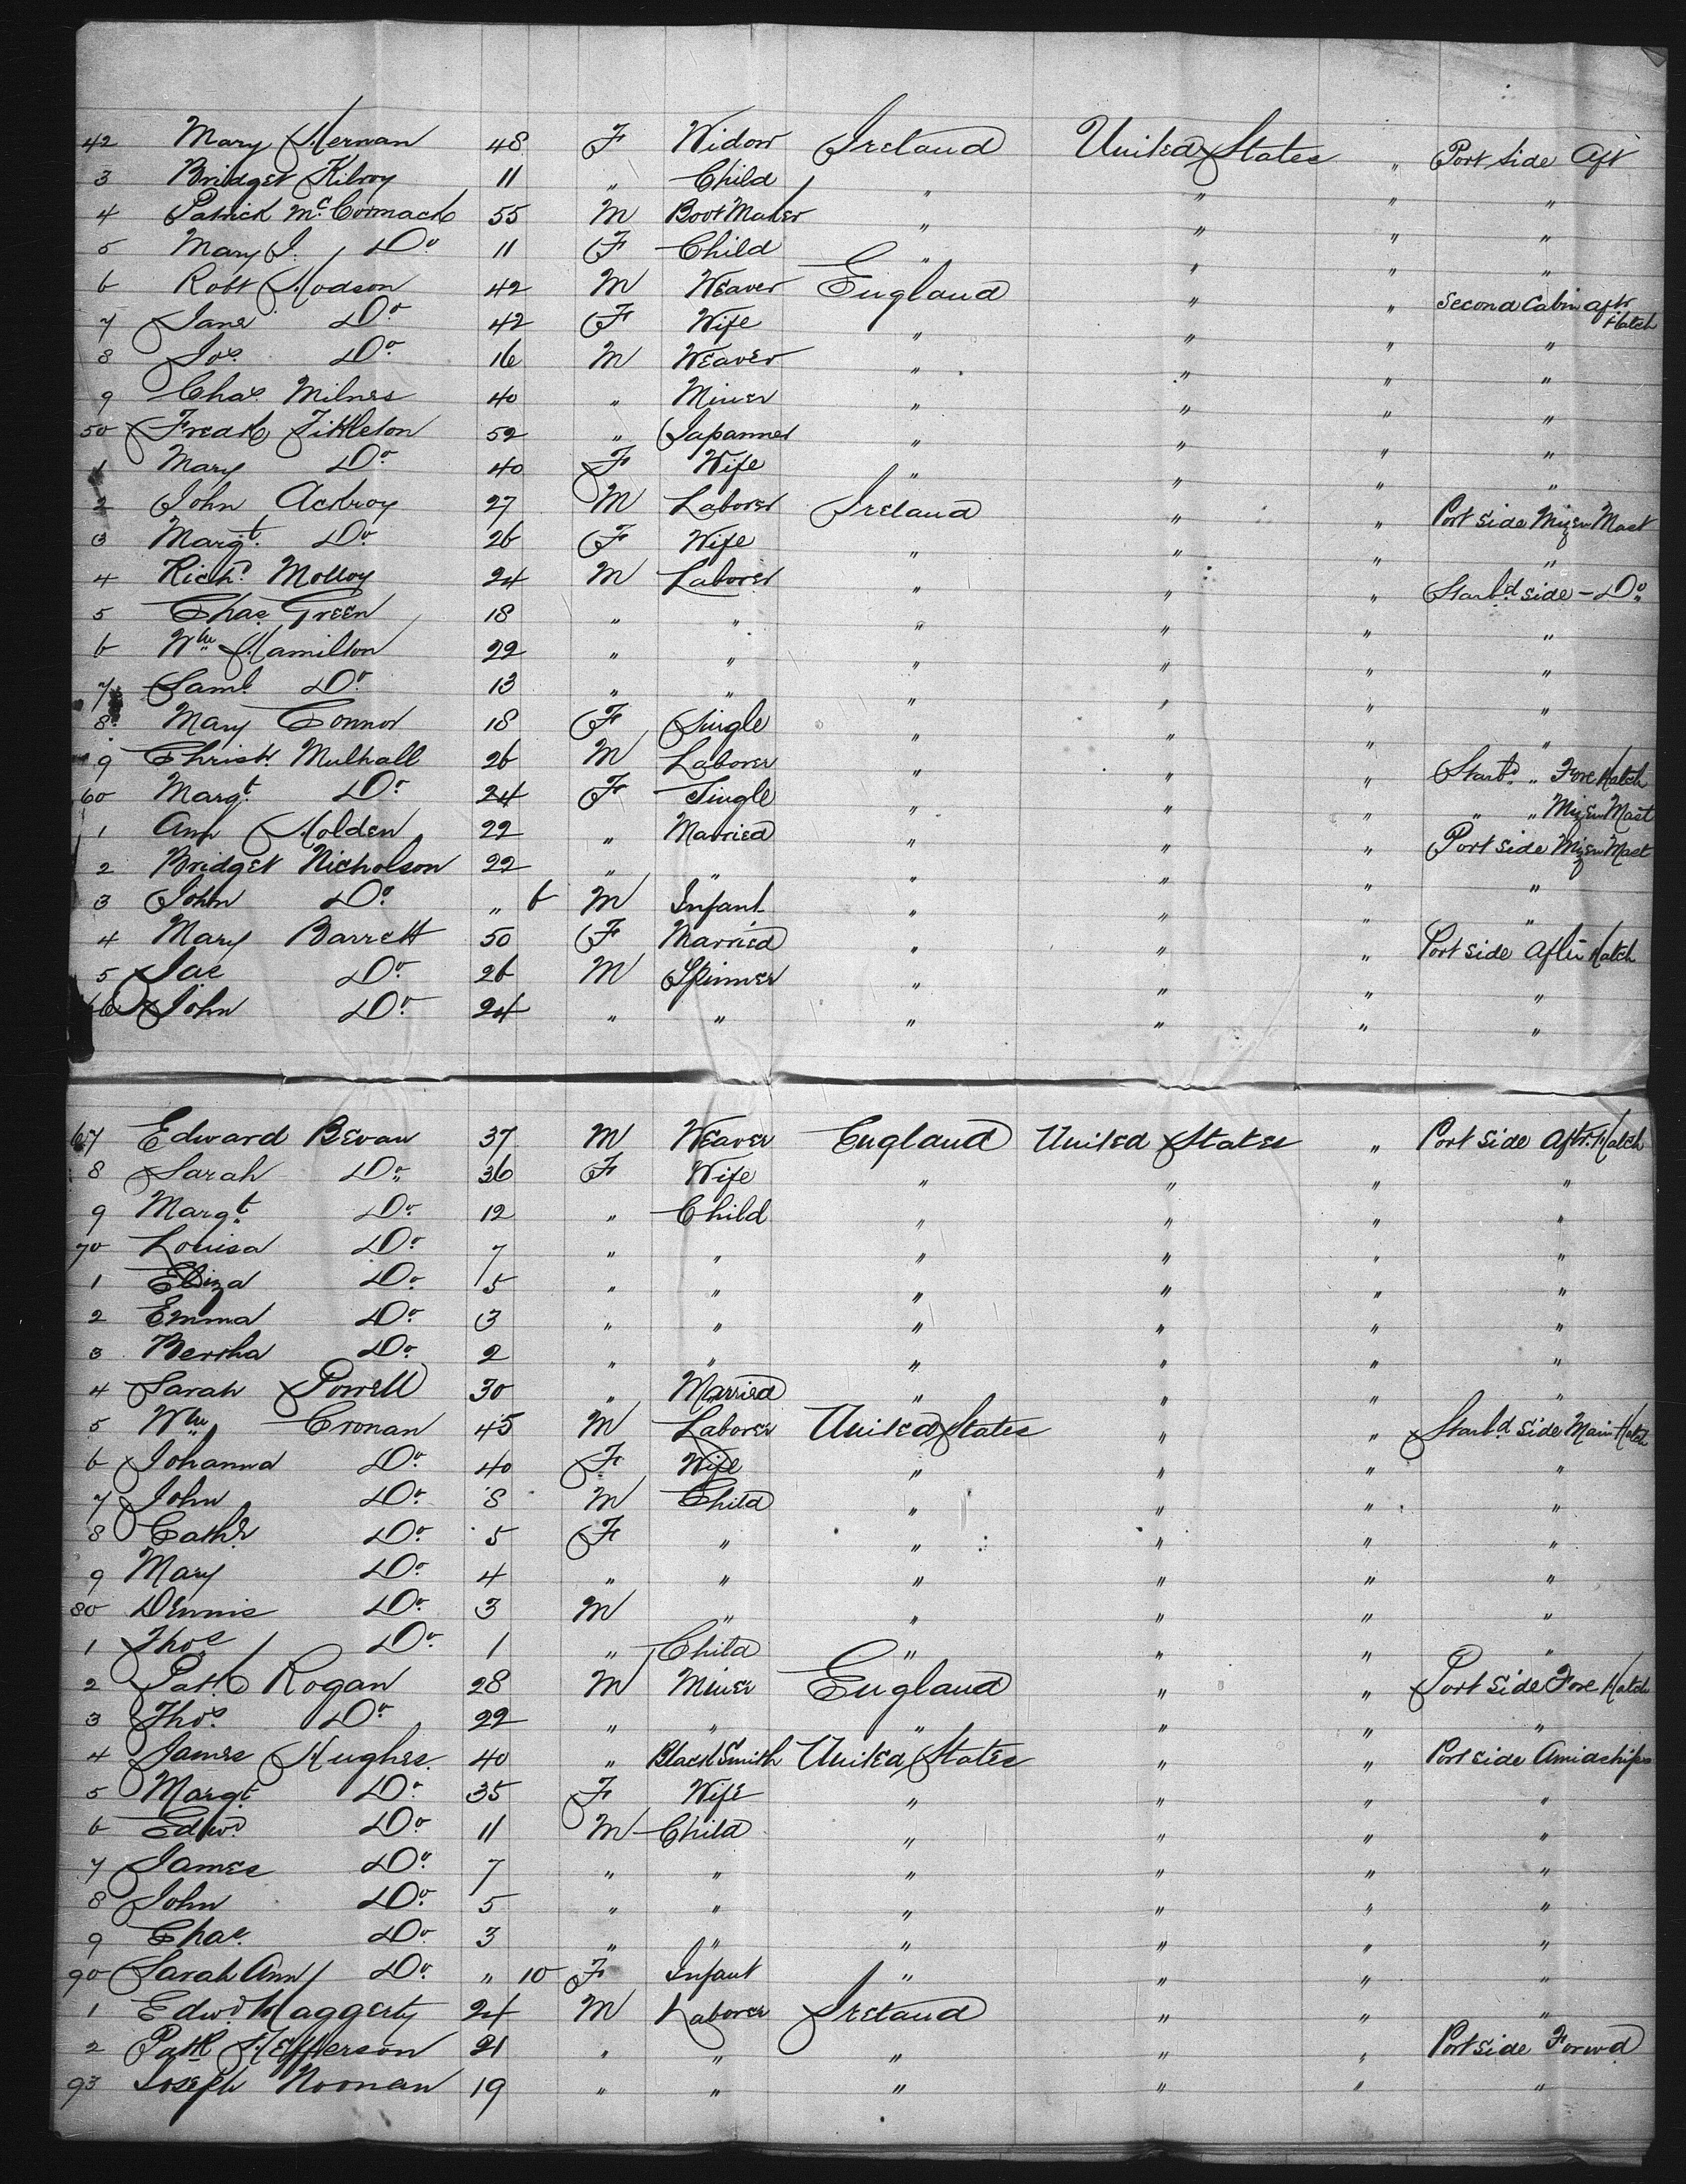 42 Mary Kernan 48 F Widow Ireland United States " Port Side Aft
3 Bridget Kilroy 11 " Child " " " "
4 Patrick McCormack 55 M Boot Maker " " " "
5 Mary J. Do 11 F Child " " " "
6 Robt Hodson 42 M Weaver England " " Second Cabin aftr Hatch
7 Jane Do 42 F Wife " " " "
8 Jos. Do 16 M Weaver " " " "
9 Chas Milnes 40 " Miner " " " "
50 Fredk Tittleton 52 " Japanner " " " "
1 Mary Do 40 F Wife " " " "
2 John Ackroy 27 M Laborer Ireland " " Port Side Mizen Mast
3 Margt. Do 26 F Wife " " " "
4 Richd. Molloy 24 M Laborer " " " Starbd side - Do
5 Chas Green 18 " " " " " "
6 Wm Hamilton 22 " " " " " "
7 Saml. Do 13 " " " " " "
8 Mary Connor 18 F Single " " " "
9 Christr. Mulhall 26 M Laborer " " " Starbd " Fore Hatch
60 Margt. Do 24 F Single " " " " " Mizen Mast
1 Ann Holden 22 " Married " " " Port side Mizen Mast
2 Bridget Nicholson 22 " " " " " "
3 John Do " 6 M Infant " " " "
4 Mary Barrett 50 F Married " " " Port side After Hatch
5 Jas Do 26 M Spinner " " " "
66 John Do 24 " " " " " "
67 Edward Bevan 37 M Weaver England United States " Port Side Aftr. Hatch
8 Sarah Do 36 F Wife " " " "
9 Margt Do 12 " Child " " " "
70 Louisa Do 7 " " " " " "
1 Eliza Do 5 " " " " " "
2 Emma Do 3 " " " " " "
3 Bertha Do 2 " " " " " "
4 Sarah Powell 30 " Married " " " "
5 Wm Cronan 45 M Laborer United States " " Starbd side Main Hatch
6 Johanna Do 40 F Wife " " " "
7 John Do 8 M Child " " " "
8 Cathe. Do 5 F " " " " "
9 Mary Do 4 " " " " " "
80 Dennis Do 3 M " " " " "
1 Thos Do 1 " Child " " " "
2 Patk Rogan 28 M Miner England " " Port side Fore Hatch
3 Thos. Do 22 " " " " " "
4 James Hughes 40 " BlackSmith United States " " Port side Amidships
5 Margt. Do 35 F Wife " " " "
6 Edwd. Do 11 M Child " " " "
7 James Do 7 " " " " " "
8 John Do 5 " " " " " "
9 Chas. Do 3 " " " " " "
90 Sarah Ann Do " 10 F Infant " " " "
1 Edwd. Haggerty 24 M Laborer Ireland " " "
2 Patk Hefferson 21 " " " " " Port side Forwd
93 Joseph Noonan 19 " " " " " "